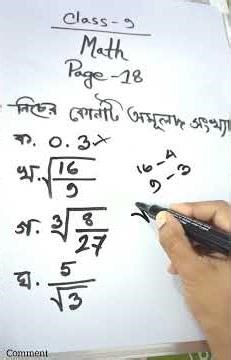 Class-9
Math
Page-18
নিচের কোনটি অমূলদ সংখ্যা
ক. 0.3
খ. √16/9
16-4
9-3
গ. ∛8/27
ঘ. 5/√3
Comment